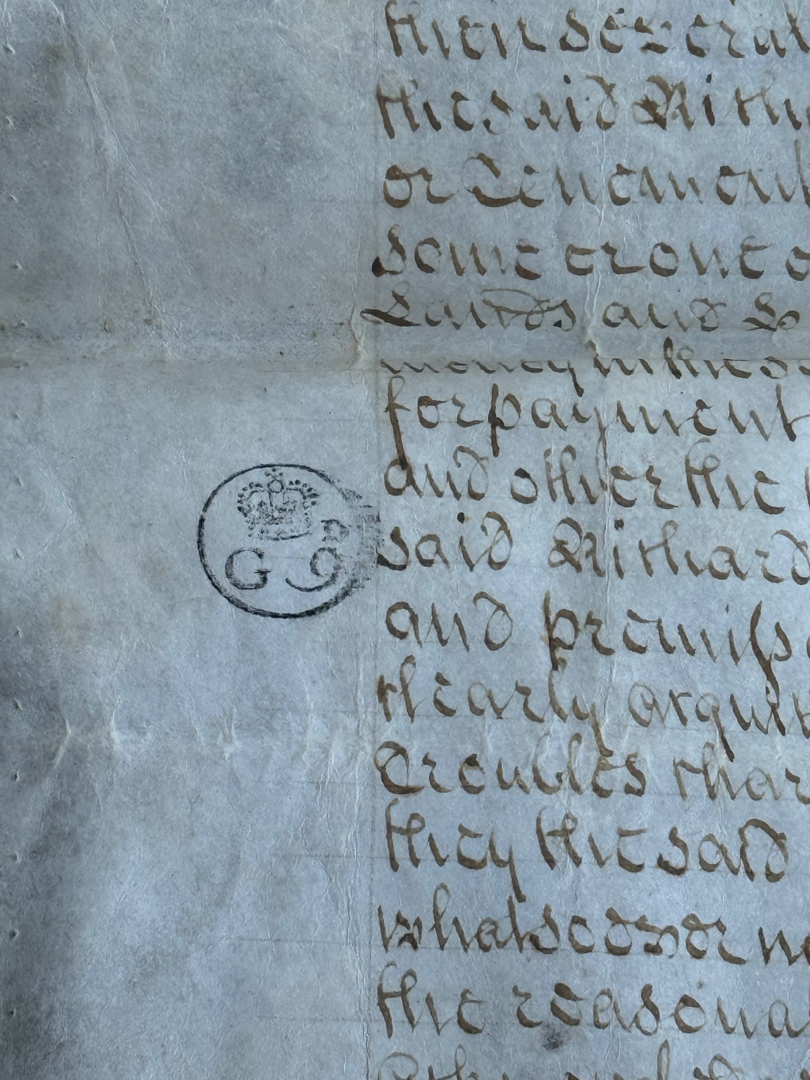 then several
the said Rich
or Tenement
some or one o
Lands and
money in the s
for payment
and other the
G 9D
said Richard
and premiss
clearly acquit
Troubles char
they the said
whatsoever
the reasona